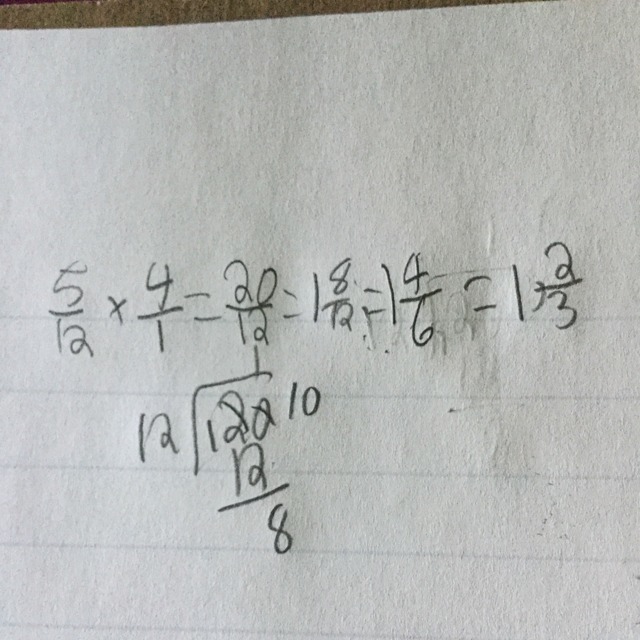 5/12 × 4/1 = 20/12 = 1 8/12 = 1 4/6 = 1 2/3
1
12 √20 10
12
8